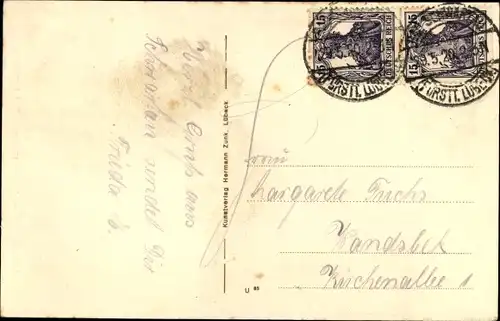 Herzl. Gruß aus
Schwartau sendet Dir
Frieda
Kunstverlag Hermann Zunk, Lübeck
U 85
15 DEUTSCHES REICH 15
15 DEUTSCHES REICH
(FÜRSTT. LÜBECK)
(FÜRSTT. LÜBECK)
Frau
Margarete Fuchs
Wandsbek
Kirchenallee